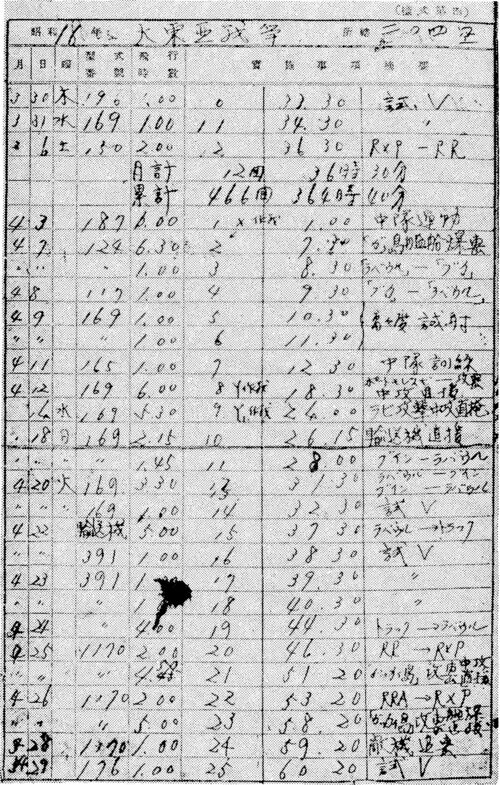 (樣式第四)
昭和 18 年 大東亜戦争
月 日 曜 型式番號 飛行時數 實施事項
3 30 木 196 1.00 10 33.30 試、V
3 31 水 169 1.00 11 34.30 〃
6 土 130 2.00 12 36 30 R×P－RR
月計 12回 36時 30分
累計 466回 364時 40分
4 3 187 1.00 1 X作戦 1.00 中隊運動
4 7 124 6.30 2 7.30
〃 〃 1.00 3 8.30 「ラバウル」－「ブカ」
4 8 117 1.00 4 9.30 「ブカ」－「ラバウル」
4 9 169 1.00 5 10.30
〃 〃 1.00 6 11.30
4 11 165 1.00 7 12.30 中隊訓練
4 12 169 6.00 8 Y作戦 18.30 中攻直掩
14 水 169 5.30 9 Y作戦 24.00 ラビ攻撃中攻直掩
〃 18 日 169 2.15 10 26.15 輸送機直掩
〃 〃 1.45 11 28.00 ブイン－ラバウル
4 20 火 169 3.30 31.30 ラバウル－ブイン
ブイン－ラバウル
〃 〃 169 1.00 14 32.30 試 V
4 22 輸送機 5.00 15 37 30 ラバウル－トラック
〃 〃 391 1.00 16 38 30 試 V
4 23 391 1. 17 39.30 〃
〃 〃 18 40.30 〃
4 24 〃 4.00 19 44 30 トラック－ラバウル
4 25 1170 2.00 20 46.30 RR→R×P
〃 〃 21 51 20
4 26 1070 2.00 22 53 20 RRA→R×P
〃 〃 5.00 23 58.20
28 1370 1.00 24 59.20 敵機追撃
29 176 1.00 25 60 20 試 V